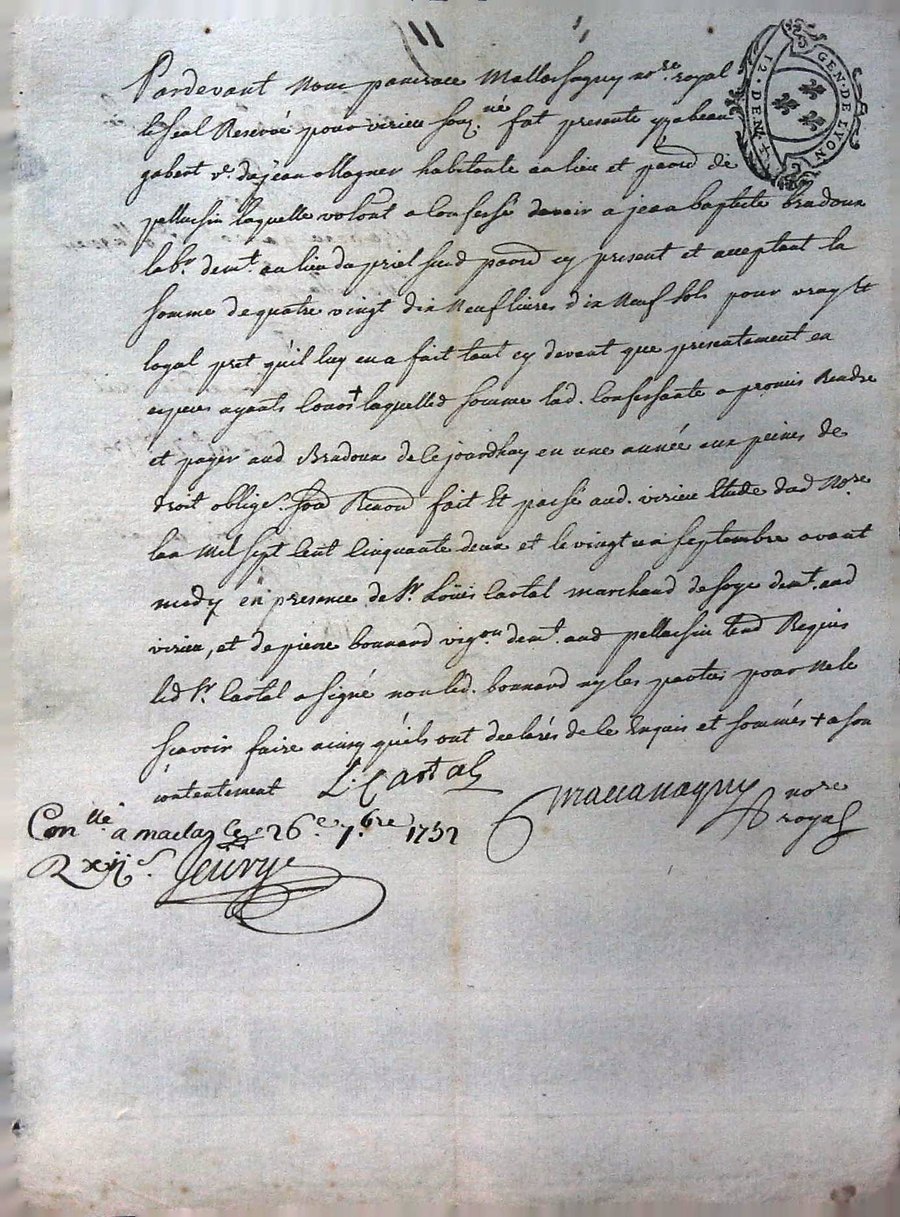 11
GEN · DE LYON
12 · DEN
Pardevant Nous royal
le seul Reservé pour virieu souz.né fut presente yzabeau
gabert v.e habitante au lieu et parois de
pellussin laquelle volont a confessé devoir a jean baptiste bradoux
lab.r dem.t au lieu cy present et acceptant la
somme de quatre vingt dix Neuf livres dix Neuf sols pour vray et
loyal pret qu'il luy en a fait tant cy devant que presentement en
espces ayants cours + laquelle somme lad. confessante a promis Rendre
et payer aud Bradoux de ce jourdhuy en une année aux peines de
droit oblige. fait et passé aud. virieu Etude dud No.re
lan Mil sept cent cinquante deux et le vingt un septembre avant
midy en presence de S.r Loüis Cartal marchand de soye dem.t aud
virieu, et de pierre bonnard vig.on dem.t aud pellussin Requis
led S.r Cartal a signé non led. bonnard ny les parties pour ne le
sçavoir faire ainsy qu'ils ont declarés de ce Enquis et sommés + a son
contentement L. Cartal
no.re
royal
Con.llé a maclas le 26.e 7.bre 1752